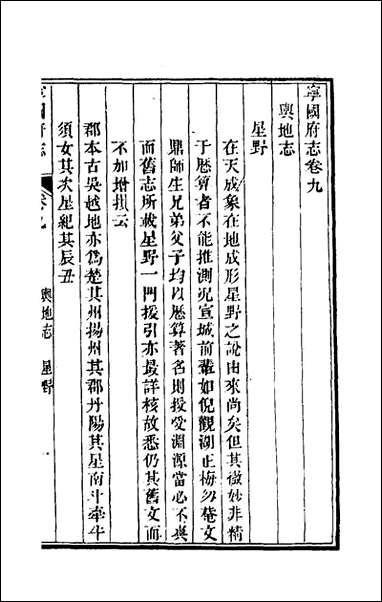 寧國府志卷九
輿地志
星野
在天成象在地成形星野之說由來尚矣但其微妙非精
于歷算者不能推測況宣城前輩如倪觀湖正梅勿菴文
鼎師生兄弟父子均以歷算著名則授受淵源當必不爽
而舊志所載星野一門援引亦最詳核故悉仍其舊文而
不加增損云
郡本古吳越地亦爲楚其州揚州其郡丹陽其星南斗牽牛
須女其次星紀其辰丑
寧國府志
卷九
輿地志 星野